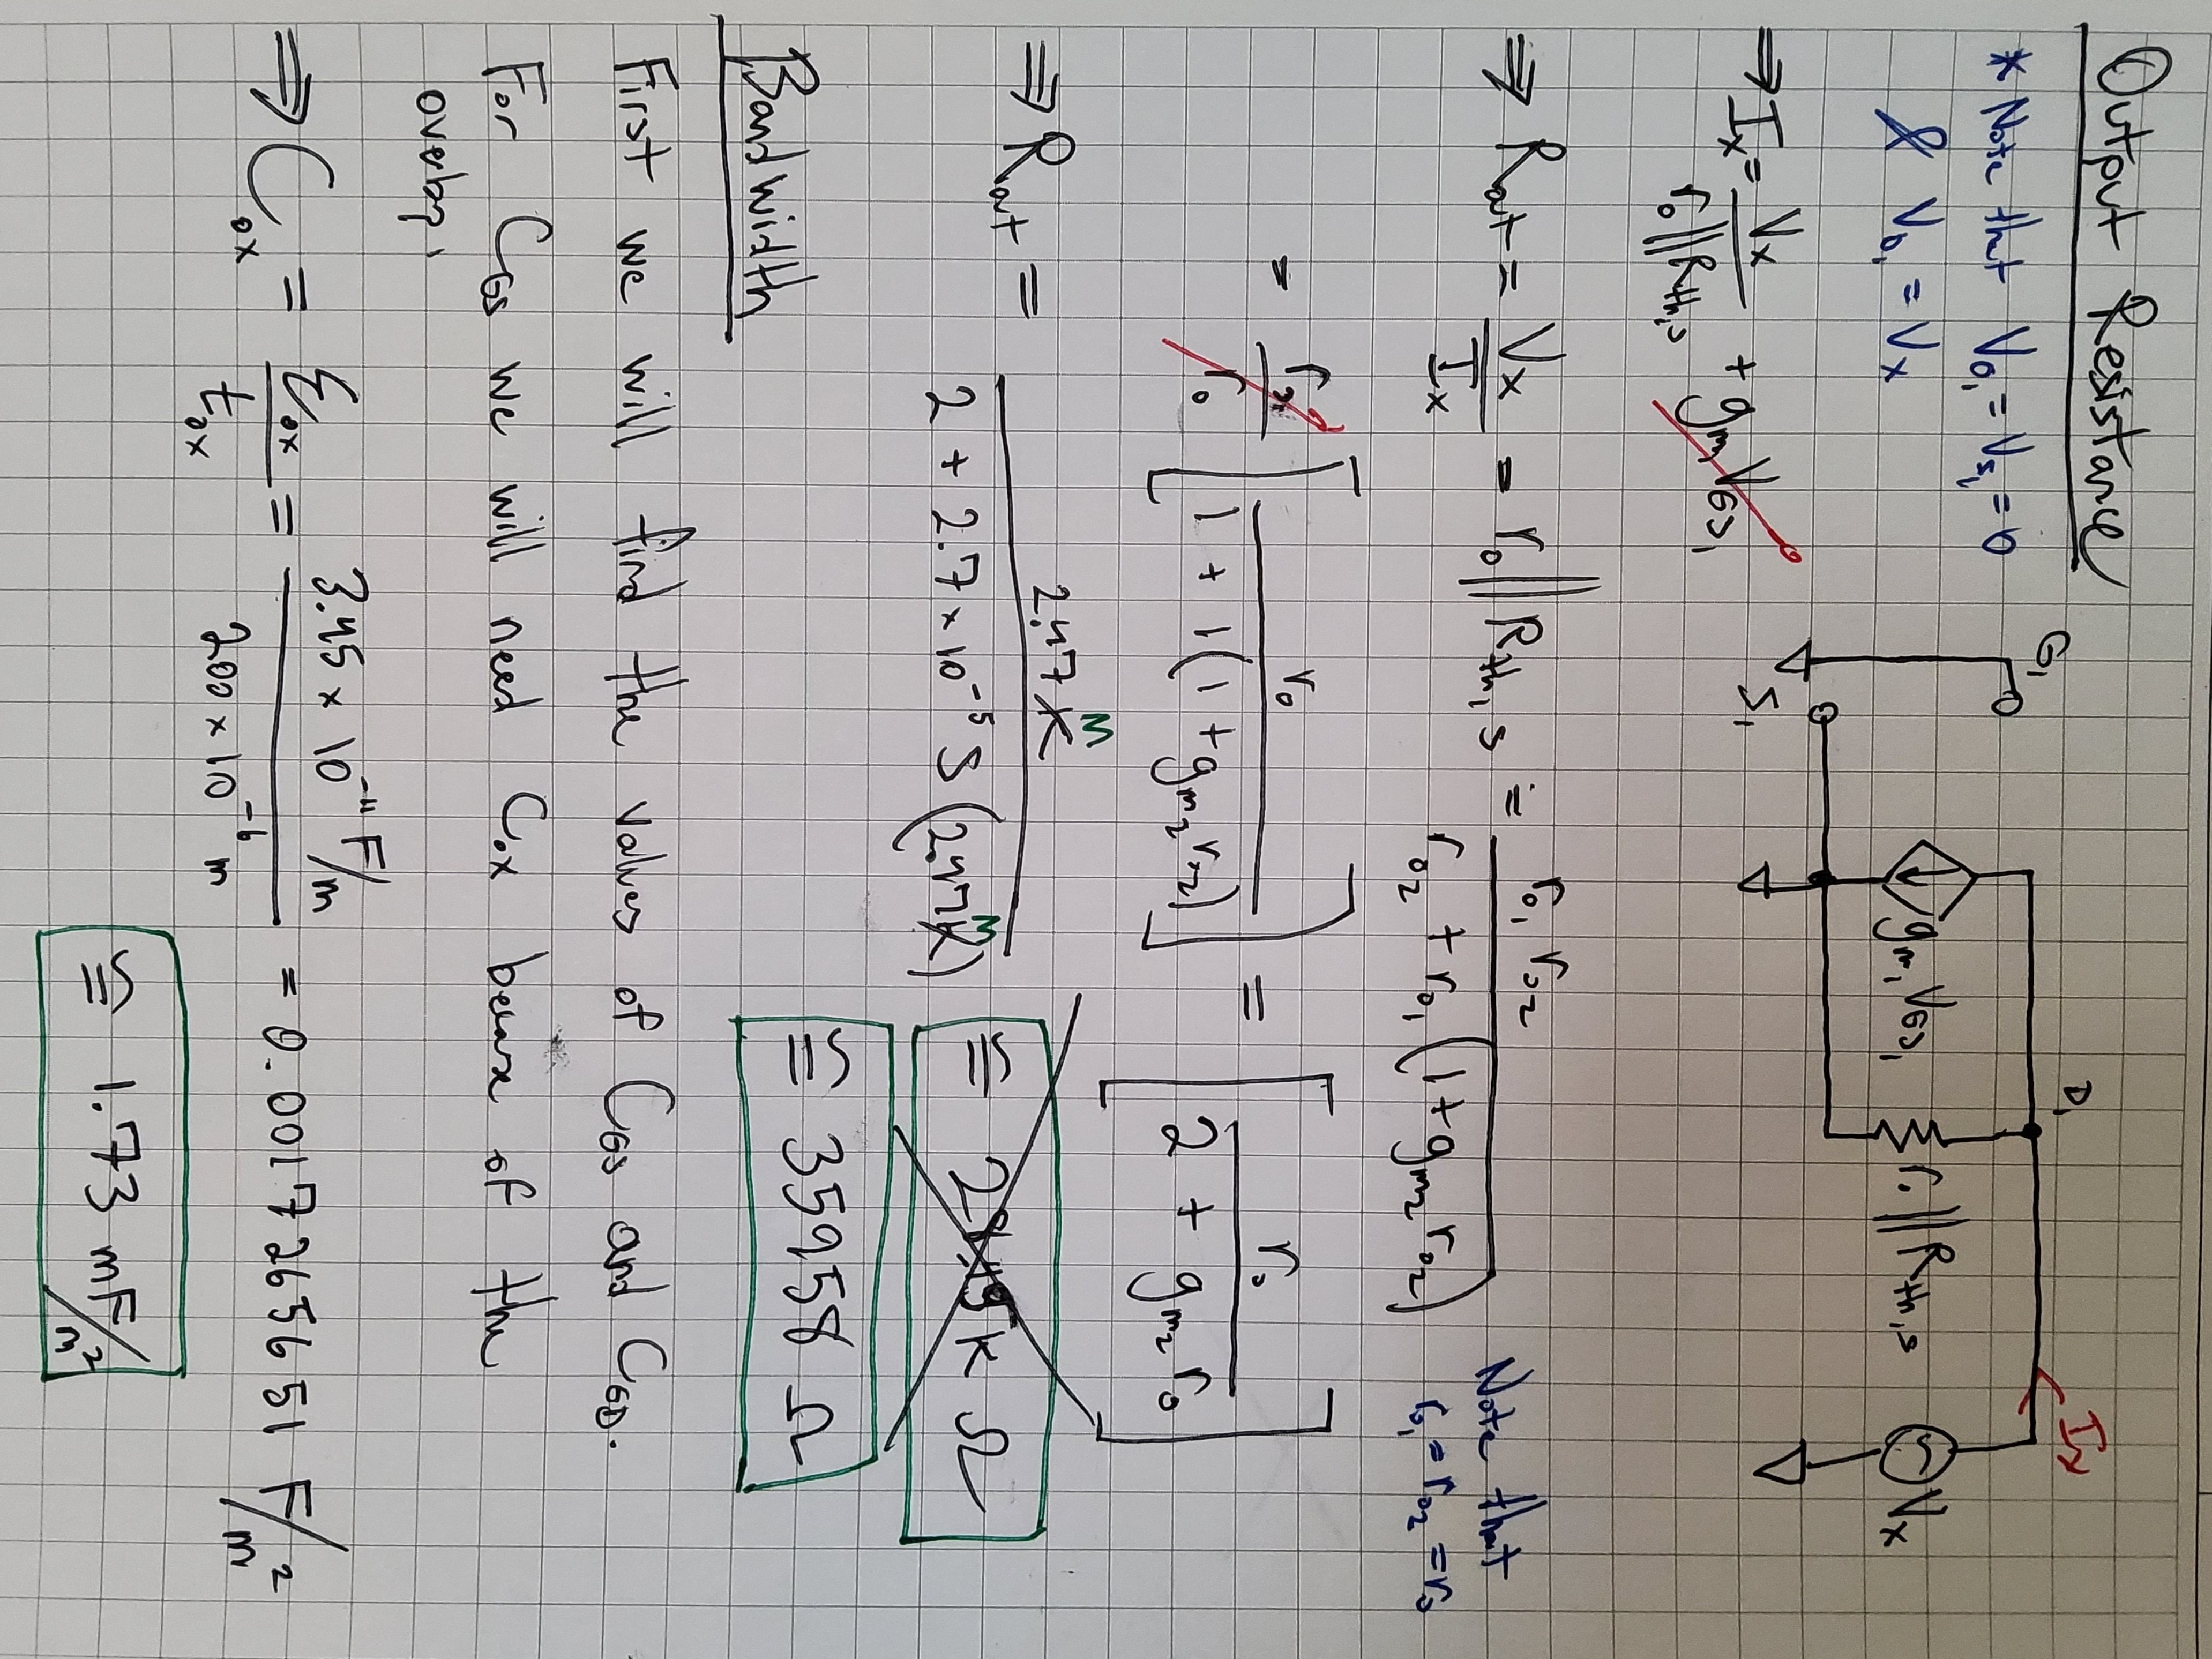 Output Resistance
* Note that V_G₁ = V_S₁ = 0
& V_D₁ = V_x
G₁
D₁
I_x
g_m₁ V_GS₁
r_o || R_th,s
V_x
S₁
⇒ I_x = V_x / (r_o || R_th,s) + g_m₁ V_GS₁ 0
⇒ R_out = V_x / I_x = r_o || R_th,s = r_o₁ r_o₂ / (r_o₂ + r_o₁ (1 + g_m₂ r_o₂))
Note that
r_o₁ = r_o₂ = r_o
= r_o / r_o [ r_o / (1 + 1(1 + g_m₂ r_o₂)) ] = [ r_o / (2 + g_m₂ r_o) ]
⇒ R_out = 2.47 M / (2 + 2.7 × 10⁻⁵ S (2.47 M))
≅ 35958 Ω
Bandwidth
First we will find the values of C_GS and C_GD.
For C_GS we will need C_ox because of the
overlap.
⇒ C_ox = ε_ox / t_ox = 3.45 × 10⁻¹¹ F/m / 200 × 10⁻⁶ m = 0.001726565 1 F/m²
≅ 1.73 mF/m²